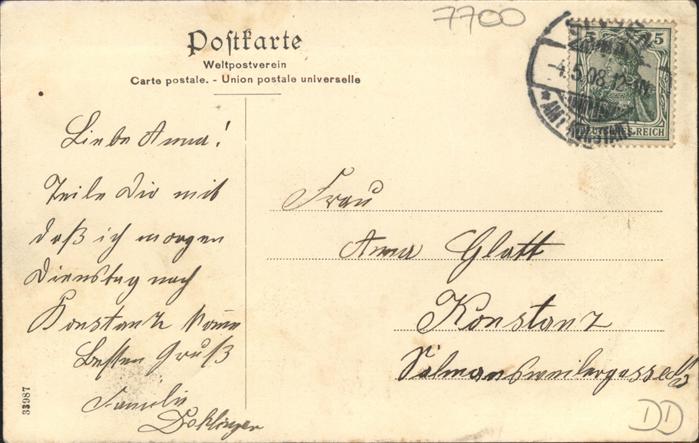 7700
Postkarte
Weltpostverein
Carte postale. - Union postale universelle
5 5
-4.5.08.
DEUTSCHES REICH
Liebe Anna!
Teile Dir mit
daß ich morgen
Dienstag nach
Konstanz komme
Besten Gruß
Familie
Frau
Anna Glatt
Konstanz
Salmansweilergasse
33987
DD